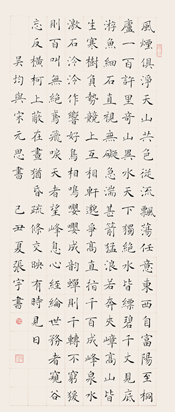 風煙俱淨天山共色從流飄蕩任意東西自富陽至桐
廬一百許里奇山異水天下獨絕水皆縹碧千丈見底
游魚細石直視無礙急湍甚箭猛浪若奔夾嶂高山皆
生寒樹負勢競上互相軒邈爭高直指千百成峰泉水
激石泠泠作響好鳥相鳴嚶嚶成韻蟬則千轉不窮猿
則百叫無絕鳶飛唳天者望峰息心經綸世務者窺谷
忘反橫柯上蔽在晝猶昏疏條交映有時見日
吳均與宋元思書 己丑夏張宇書